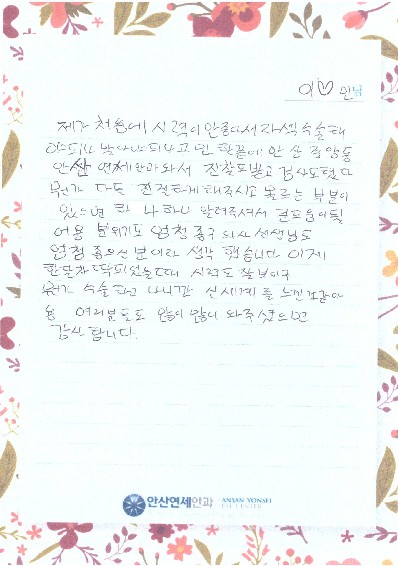 이♡민님
제가 처음에 시력이 안좋아서 라섹수술해
야되나 말아야되나고민 한끝에 안산 중앙동
안산 연세안과와서 진찰도받고 검사도했다
뭔가 다들 친절하게 해주시고 모르는 부분이
있으면 하나하나 알려주셔서 도움이될
어용 분위기도 엄청좋구 의사선생님도
엄청 좋으신분이라 생각 했습니다 이제
한달차 되었는데 시력도 잘보이구
뭔가 수술하고나니깐 신세계를 느낀것같아
용 여러분들도 많이 많이 와주셨으면
감사합니다.
안산연세안과 ANSAN YONSEI
EYE CENTER